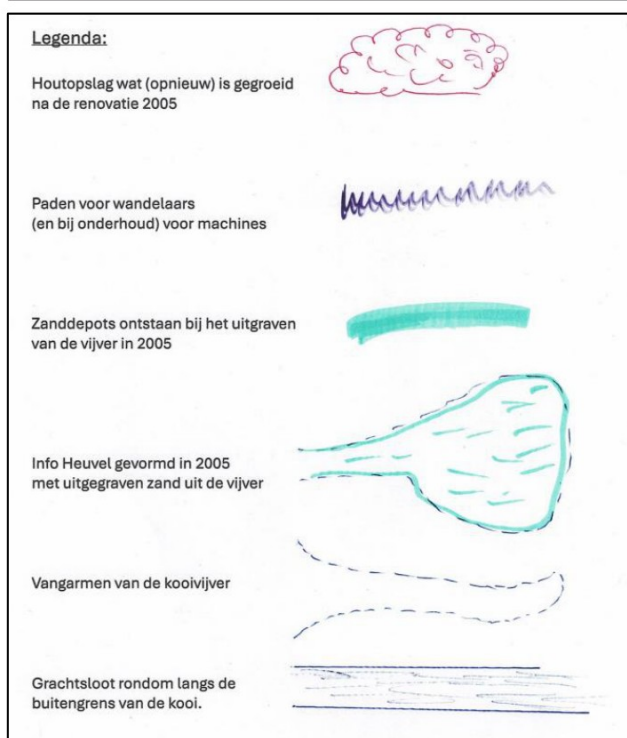 Legenda:
Houtopslag wat (opnieuw) is gegroeid
na de renovatie 2005
Paden voor wandelaars
(en bij onderhoud) voor machines
Zanddepots ontstaan bij het uitgraven
van de vijver in 2005
Info Heuvel gevormd in 2005
met uitgegraven zand uit de vijver
Vangarmen van de kooivijver
Grachtsloot rondom langs de
buitengrens van de kooi.